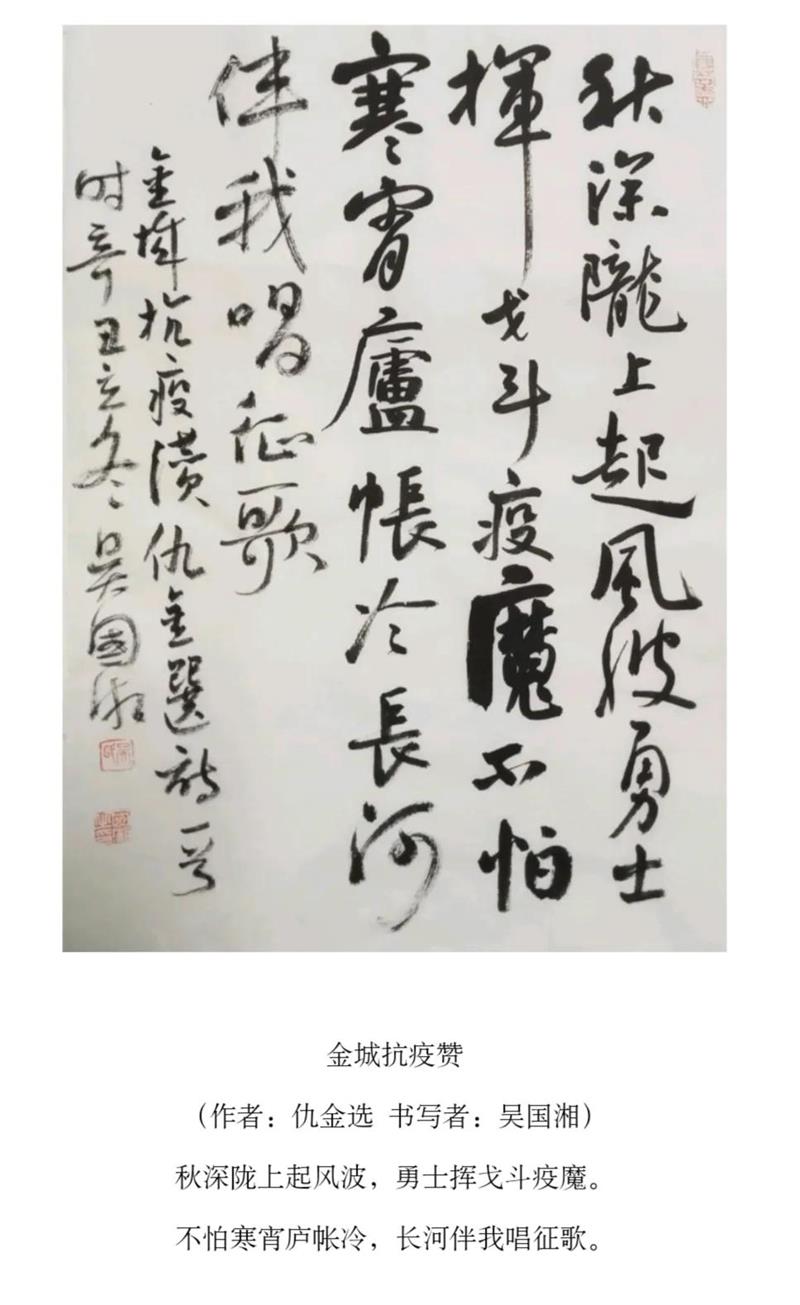 秋深隴上起風波勇士
揮戈斗疫魔不怕
寒宵廬帳冷長河
伴我唱征歌
金城抗疫讃仇金選诗一首
时辛丑立冬吴國湘
金城抗疫赞
（作者：仇金选 书写者：吴国湘）
秋深陇上起风波，勇士挥戈斗疫魔。
不怕寒宵庐帐冷，长河伴我唱征歌。